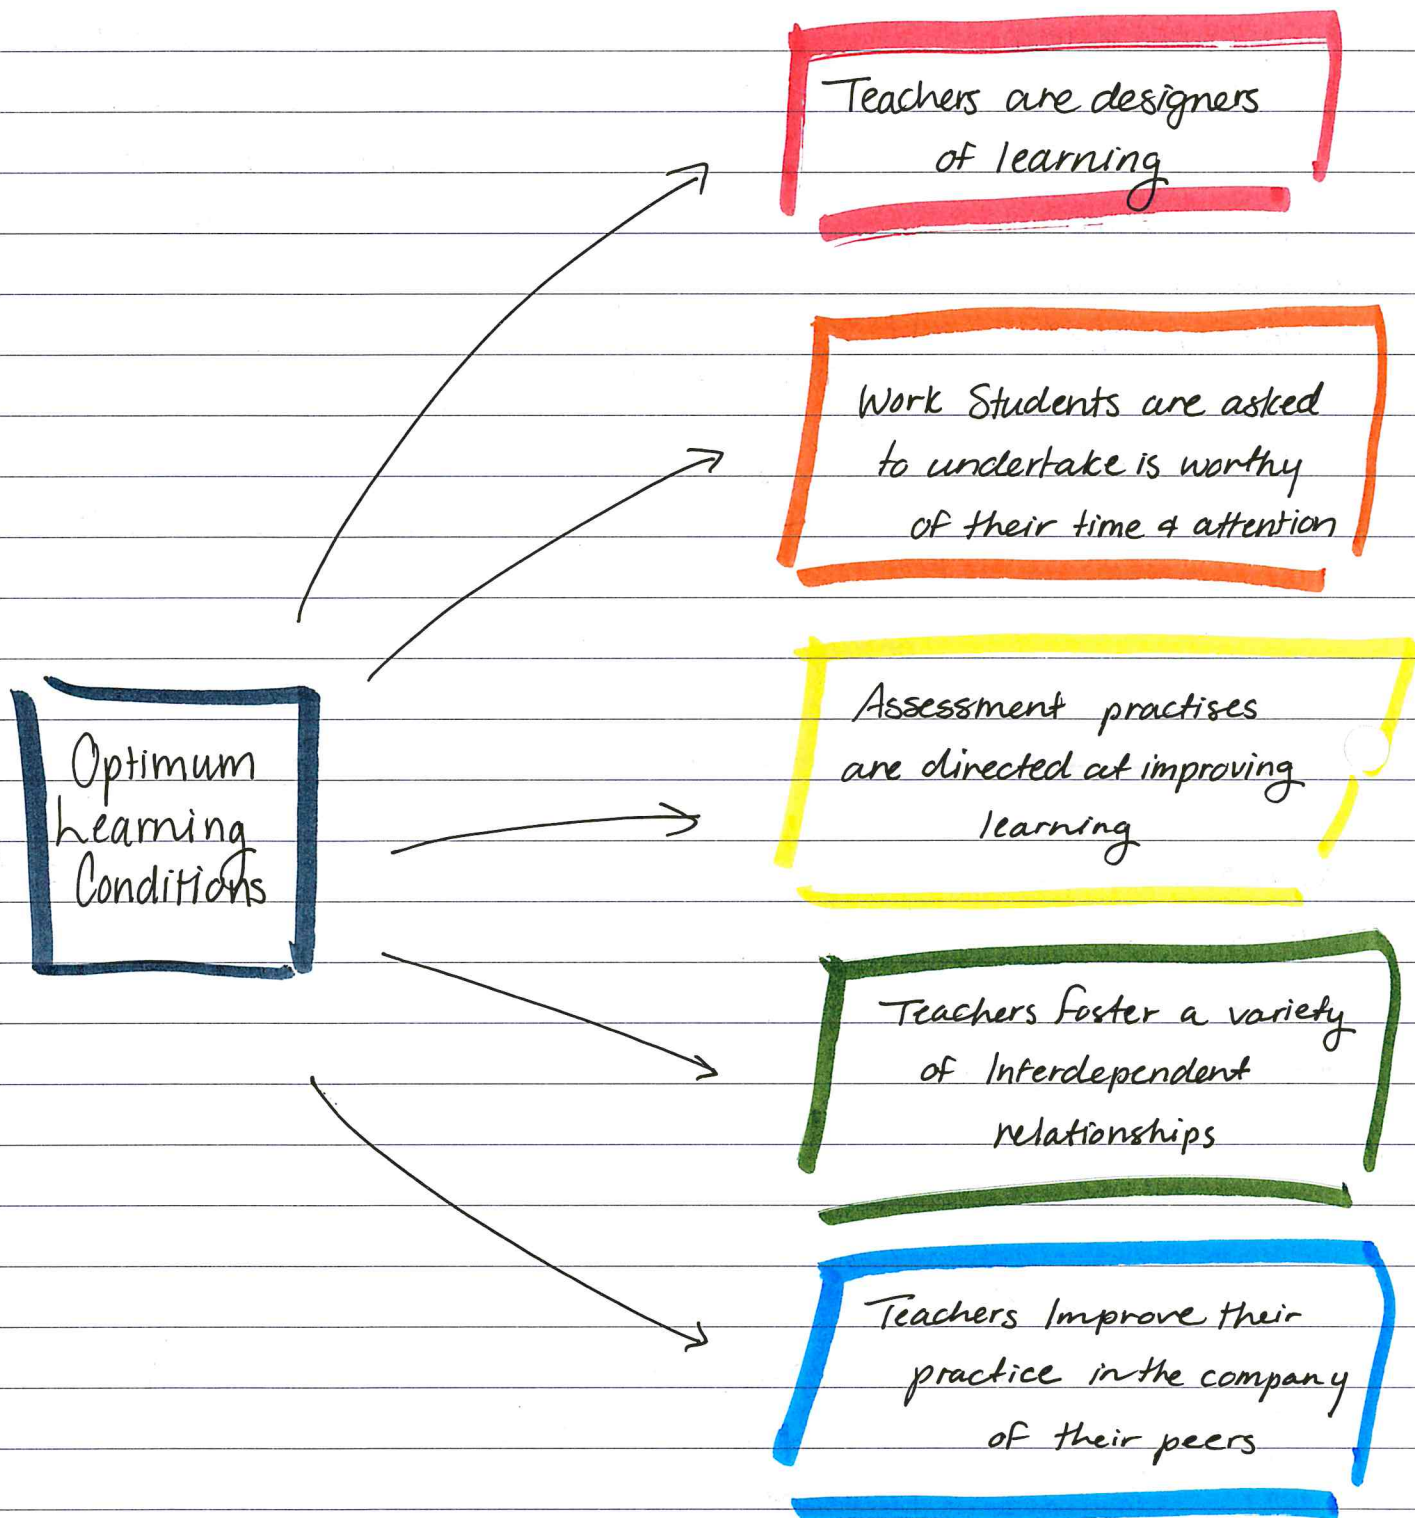 Teachers are designers
of learning
Work Students are asked
to undertake is worthy
of their time & attention
Optimum
Learning
Conditions
Assessment practises
are directed at improving
learning
Teachers foster a variety
of Interdependent
relationships
Teachers Improve their
practice in the company
of their peers